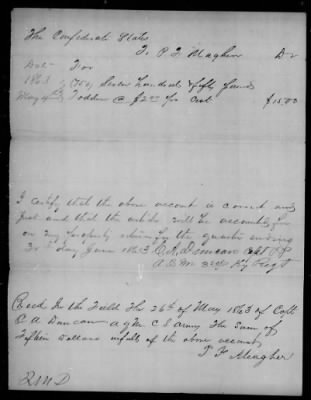 The Confederate States
To P F Meagher Dr
Date For
1863
May (750) Seven hundred & fifty pounds
Fodder @ $2.00 pr cwt $15.00
I certify that the above account is correct and
just and that the articles will be accounted for
on my property return for the quarter ending
30th day June 1863. C. A. Duncan Capt &
A.Q.M. 3rd Ky Regt
Recd In the Field The 26th of May 1863 of Capt
C A Duncan a q m C S army The Sum of
Fifteen Dollars in full of the above account
P F Meagher